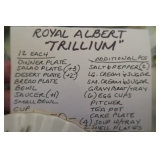 ROYAL ALBERT
"TRILLIUM"
12 EACH
DINNER PLATE
SALAD PLATE (+3)
DESERT PLATE (+2)
BREAD PLATE
BOWL
SAUCER (+1)
SMALL BOWL
CUP
ADDITIONAL PCS
SALT & PEPPER (2)
LG. CREAM & SUGAR
SM. CREAM & SUGAR
GRAVY/
(6) EGG CUPS
PITCHER
TEA POT
CAKE PLATE
(4) SOUP W/TRAY
SHELL PLATES